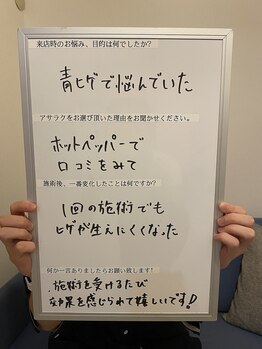 来店時のお悩み、目的は何でしたか?
青ヒゲで悩んでいた
アサラクをお選び頂いた理由をお聞かせください。
ホットペッパーで
口コミをみて
施術後、一番変化したことは何ですか?
1回の施術でも
ヒゲが生えにくくなった
何か一言ありましたらお願い致します!
施術を受けるたび
効果を感じられて嬉しいです!